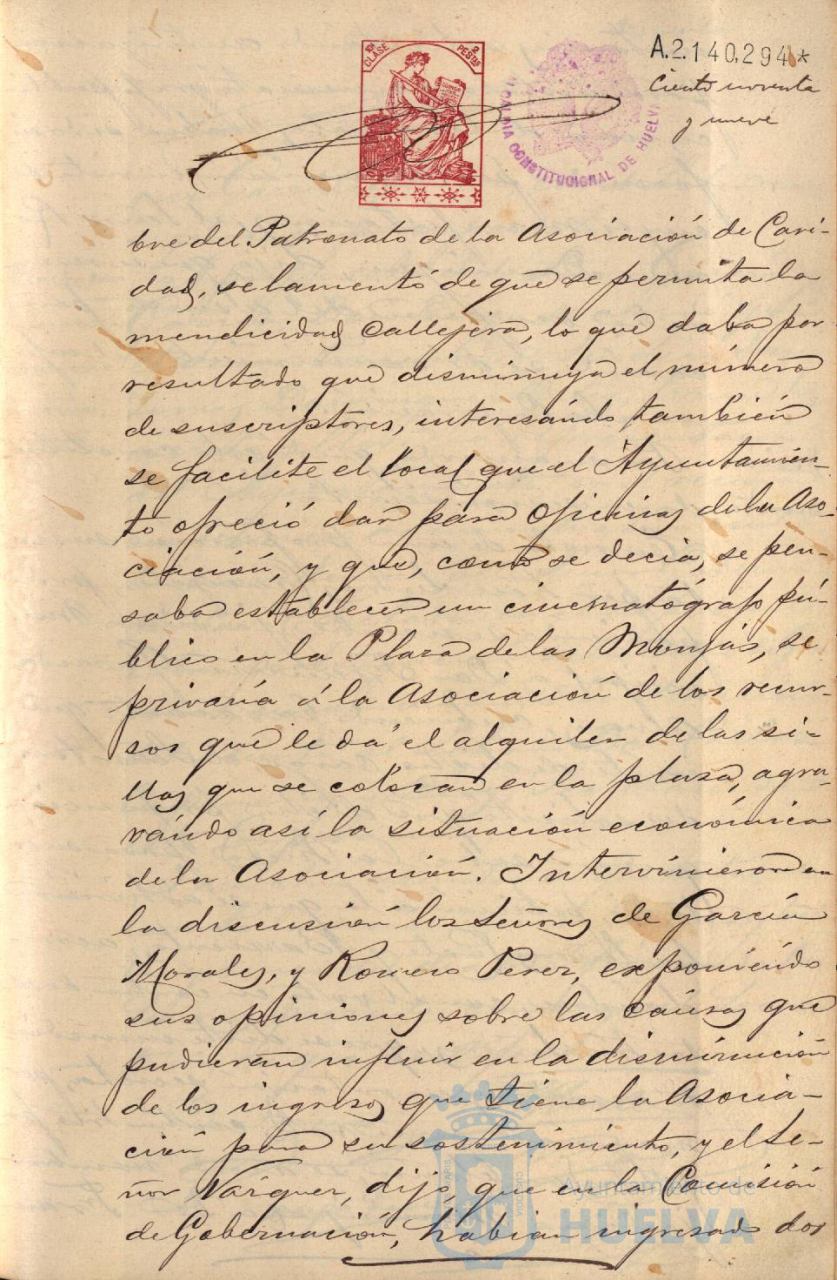 10ª CLASE
2 PESTAS
A.2.140.294*
Ciento noventa
y nueve
CONSTITUCIONAL DE HUELVA
bre del Patronato de la Asociación de Cari-
dad, se lamentó de que se permita la
mendicidad callejera, lo que daba por
resultado que disminuya el número
de suscriptores, interesándo también
se facilite el local que el Ayuntamien-
to ofreció dar para oficinas de la Aso-
ciación, y que, como se decia, se pen-
saba establecer un cinematógrafo pú-
blico en la Plaza de las Monjas, se
privaría á la Asociación de los recur-
sos que le dá el alquiler de las si-
llas que se colocan en la plaza, agra-
vándo así la situación económica
de la Asociación. Intervinieron en
la discusión los Señores de García
Morales, y Romero Perez, exponiéndo
sus opiniones sobre las causas que
pudieran influir en la disminución
de los ingresos que tiene la Asocia-
ción para su sostenimiento, y el Se-
ñor Vázquez, dijo, que en la Comisión
de Gobernación, habian ingresado dos
Ayuntamiento de
HUELVA